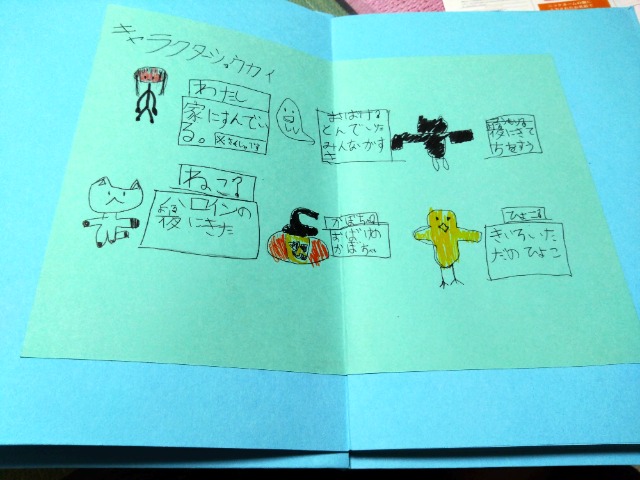 キャラクターショウカイ
わたし
家にすんでい
る。
ねこ?
ロインの
後にきた
おばける
とんでいた
みんなかす
き
夜にきて
ちをすう
かぼちゃ
おばけの
かぼちゃ
ひよこ
きいろいた
だのひよこ